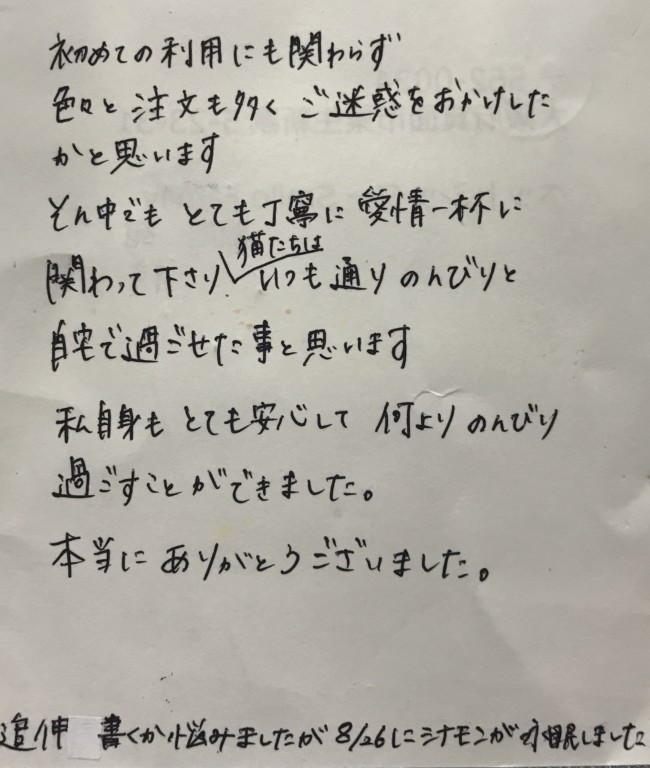 初めての利用にも関わらず
色々と注文も多く ご迷惑をおかけした
かと思います
そん中でも とても丁寧に愛情一杯に
関わって下さり猫たちはいつも通りのんびりと
自宅で過ごせた事と思います
私自身もとても安心して 何よりのんびり
過ごすことができました。
本当にありがとうございました。
追伸 書くか悩みましたが8/26にシナモンが永眠しました